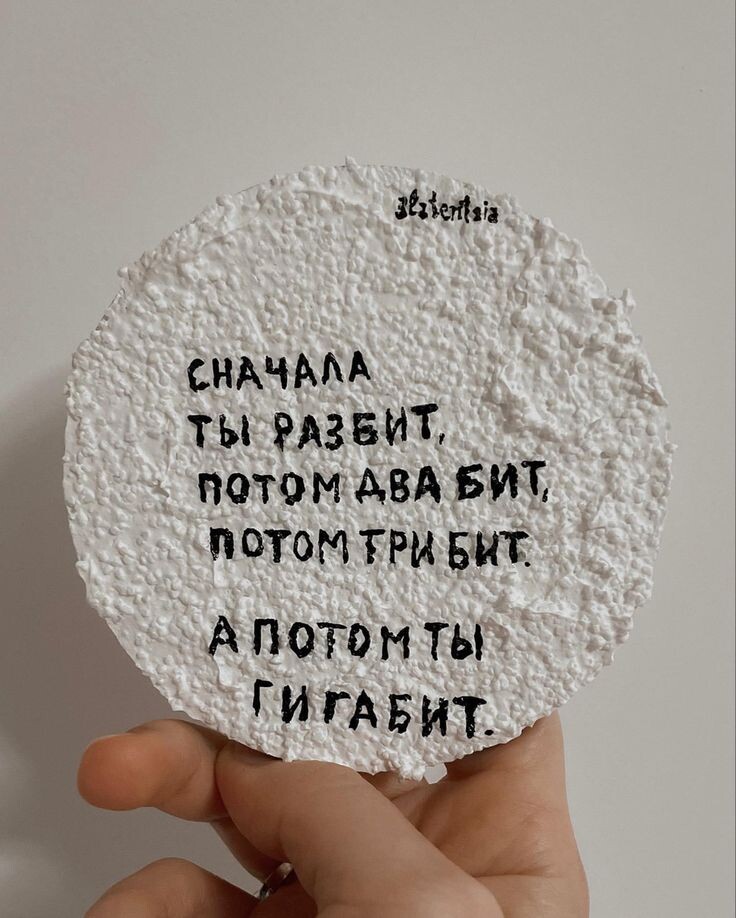 СНАЧАЛА
ТЫ РАЗБИТ,
ПОТОМ ДВА БИТ,
ПОТОМ ТРИ БИТ.
А ПОТОМ ТЫ
ГИГАБИТ.